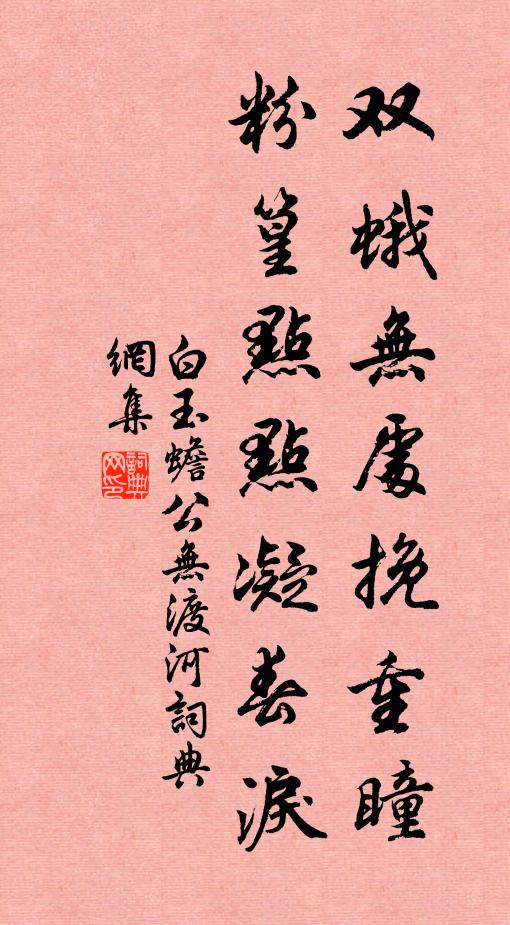 双蛾無處挽重瞳
粉篁點點凝春淚
白玉蟾公無渡河詞典
網集
詞典
网印